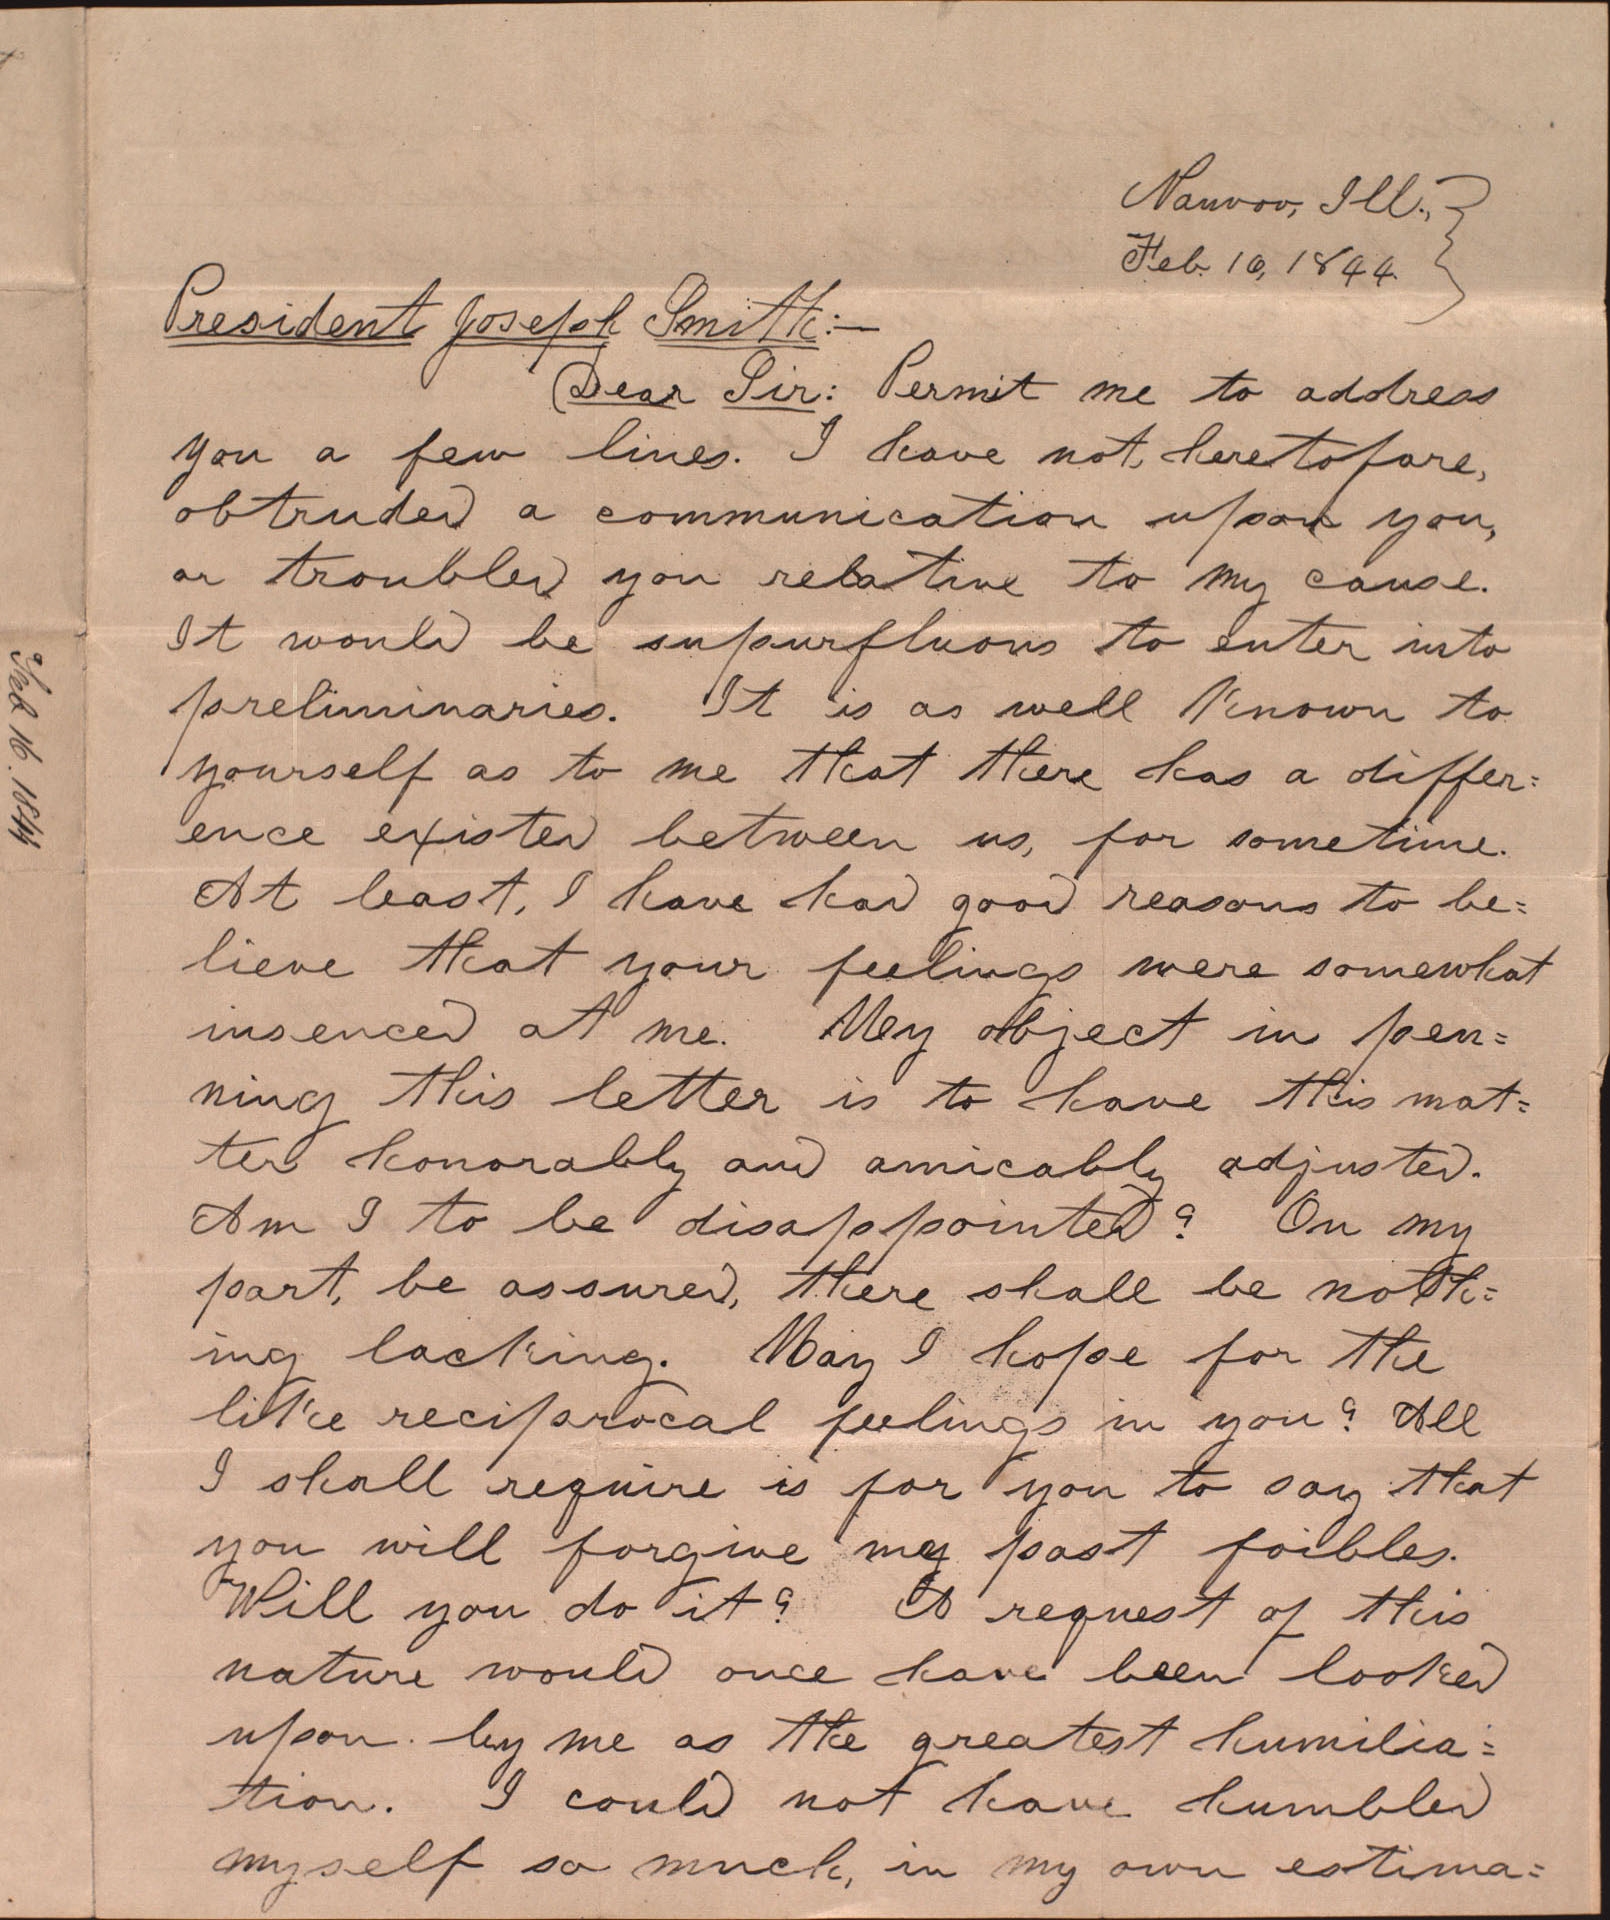 Nauvoo, Ill.,
Feb. 16, 1844.
President Joseph Smith:—
Dear Sir: Permit me to address
you a few lines. I have not, heretofore,
obtruded a communication upon you,
or troubled you relative to my cause.
It would be supurfluous to enter into
preliminaries. It is as well known to
yourself as to me that there has a differ=
ence existed between us, for sometime.
At least, I have had good reasons to be=
lieve that your feelings were somewhat
insenced at me. My object in pen=
ning this letter is to have this mat=
ter honorably and amicably adjusted.
Am I to be disappointed? On my
part, be assured, there shall be noth=
ing lacking. May I hope for the
like reciprocal feelings in you? All
I shall require is for you to say that
you will forgive my past foibles.
Will you do it? A request of this
nature would once have been looked
upon by me as the greatest humilia=
tion. I could not have humbled
myself so much, in my own estima=
Feb 16. 1844